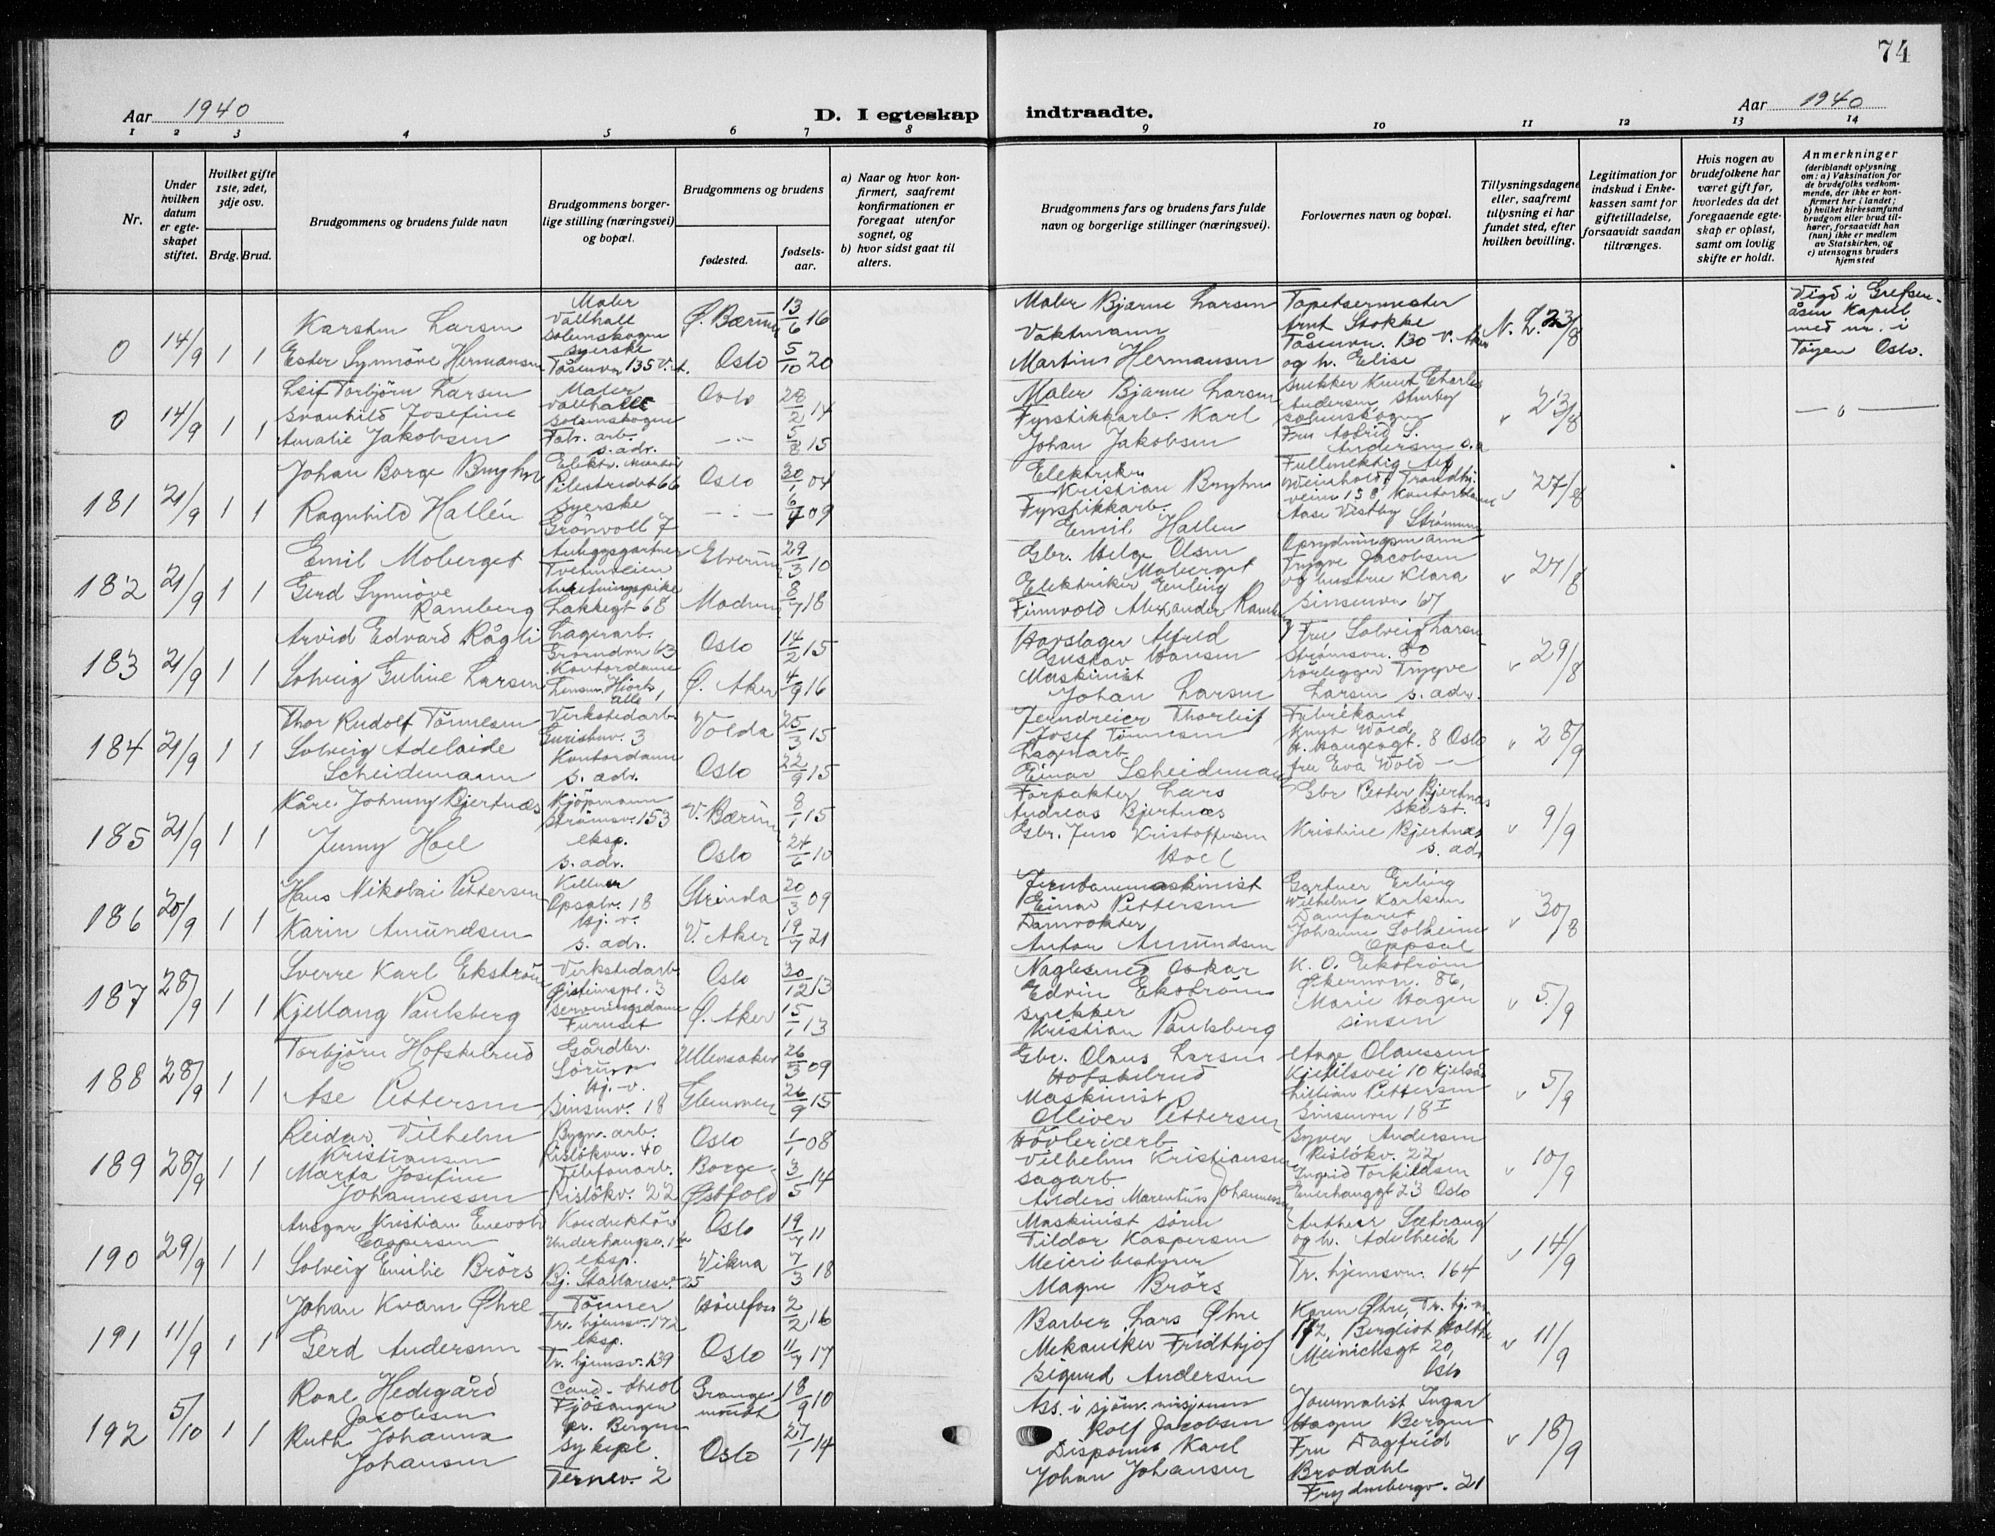 74
Aar 1940
D. I egteskap indtraadte.
Aar 1940
1 2 3 4 5 6 7 8 9 10 11 12 13 14
Nr.
Under hvilken datum er egteskapet stiftet.
Hvilket gifte 1ste, 2det, 3dje osv.
Brdg. Brud.
Brudgommens og brudens fulde navn
Brudgommens borgerlige stilling (næringsvei) og bopæl.
Brudgommens og brudens
fødested.
fødselsaar.
a) Naar og hvor konfirmert, saafremt konfirmationen er foregaat utenfor sognet, og
b) hvor sidst gaat til alters.
Brudgommens fars og brudens fars fulde navn og borgerlige stillinger (næringsvei).
Forlovernes navn og bopæl.
Tillysningsdagene eller, saafremt tillysning ei har fundet sted, efter hvilken bevilling.
Legitimation for indskud i Enkekassen samt for giftetilladelse, forsaavidt saadan tiltrænges.
Hvis nogen av brudefolkene har været gift før, hvorledes da det foregaaende egteskap er opløst, samt om lovlig skifte er holdt.
Anmerkninger
(deriblandt oplysning om: a) Vaksination for de brudefolks vedkommende, der ikke er konfirmert her i landet; b) hvilket kirkesamfund brudgom eller brud tilhører, forsaavidt han (hun) ikke er medlem av Statskirken, og c) utensogns bruders hjemsted
0 14/9 1 1
Karsten Larsen
Ester Synnöve Hermansen
Maler
Vallhall
Solemskogen
syerske
Tåsenvn 135 V.A.
Ø. Bærum 13/6 16
Oslo 5/10 20
Maler Bjarne Larsen
Vaktmann
Martin Hermansen
Tapetsermester
Arnt Stokke
Tåsenvn. 130 V. Aker
og h. Elise
N. L. 23/8
Vigd i Grefsen-
åsen Kapell
med nr. i
Töyen Oslo.
0 14/9 1 1
Leif Torbjörn Larsen
Svanhild Josefine
Amalie Jakobsen
Maler
Vallhall
Solemskogen
Fabr. arb.
s. adr.
Oslo 28/2 14
—"— 5/8 15
Maler Bjarne Larsen
Fyrstikkarb. Karl
Johan Jakobsen
Snekker Knut Charles
Andersen
Solemskogen
Fru Astrid S.
Andersen s.a
" 23/8
— " —
181 21/9 1 1
Johan Borge Bruyhn
Ragnhild Hallén
Elektr. montör
Pilestredet 66
syerske
Grönvoll 7
Oslo 30/1 04
—"— 6/7 09
Elektriker
Kristian Bruyhn
Fyrstikkarb.
Emil Hallen
Fullmektig Alf
Weinholdt, Trondhj.
veien 138, Kontordame
Aase Vistby Strömmen
" 27/8
182 21/9 1 1
Emil Moberget
Gerd Synnöve
Ramberg
Anleggsgartner
Tvetenveien
Anretningspike
Lakkegt 68
Elverum 29/3 10
Modum 8/7 18
Gbr. Helge Olsen
Moberget
Elektriker Erling
Finnvold Alexander Ramberg
Oprydningsmann
Trygve Jacobsen
og hustru Klara
Sinsenvn 67
" 27/8
183 21/9 1 1
Arvid Edvard Rågli
Solveig Guline Larsen
Lagerarb.
Kontordame
Oslo 14/2 15
Ø. Aker 4/9 16
Alfred
Gustav Hansen
Maskinist
Johan Larsen
Fru Solveig Larsen
Strömsvn. 80
rörlegger Trygve
Larsen s. adr.
" 29/8
184 21/9 1 1
Thor Rudolf Tönnesen
Solveig Adelaide
Scheidemann
Verkstedarb.
Kontordame
s. adr.
Volda 25/3 15
Oslo 22/9 15
Jerndreier Thorleif
Josef Tönnesen
Lagerarb.
Einar Scheidemann
Fabrikant
Knut Wold
H. Haugesgt. 8 Oslo
fru Eva Wold —"—
" 28/9
185 21/9 1 1
Kåre Johnny Bjertnæs
Jenny Hoel
Kjöpmann
Strömsv. 153
eksp.
s. adr.
V. Bærum 8/1 15
Oslo 24/6 10
Forpakter Lars
Andreas Bjertnæs
Gbr. Jens Kristoffersen
Hoel
Gbr Petter Bjertnæs
Ski st.
Kristine Bjertnæs
s. adr
" 9/9
186 20/9 1 1
Hans Nikolai Pettersen
Karin Amundsen
Kelner
Opsalv. 18
Hj. v.
s. adr.
Strinda 20/3 09
V. Aker 19/7 21
Jernbanemaskinist
Einar Pettersen
Damvokter
Anton Amundsen
Gartner Erling
Wilhelm Karlsen
Johanne Solheim
Oppsal
" 30/8
187 28/9 1 1
Sverre Karl Ekström
Kjellaug Paulsberg
Verkstedarb.
serveringsdame
Furuset
Oslo 30/12 13
Ø. Aker 15/1 13
Naglesmed Oskar
Edvin Ekström
snekker
Kristian Paulsberg
K. O. Ekström
Økernvn. 86,
Marie Hagen
Sinsen
" 5/9
188 28/9 1 1
Torbjörn Hofskilrud
Åse Pettersen
Gårdbr.
Sörum
Hj. v.
Sinsenv. 18
Ullensaker 26/3 09
Glemmen 26/9 15
Gbr. Olaus Larsen
Hofskilrud
Maskinist
Olliver Pettersen
Aage Olaussen
Kjelilsvei 10 Kjelsås
Lillian Pettersen
Sinsenvn 18 I
" 5/9
189 28/9 1 1
Reidar Vilhelm
Kristiansen
Marta Josefine
Johannessen
Bygn. arb.
Risløkvn. 40
Telefonarb.
Risløkv. 22
Oslo 1/1 08
Borge Østfold 3/5 14
Hövleriarb.
Vilhelm Kristiansen
sagarb.
Anders Marentius Johannessen
Syver Andersen
Risløkv. 22
Ingrid Torkildsen
Enerhauggt 23 Oslo
" 10/9
190 29/9 1 1
Ansgar Kristian Enevold
Caspersen
Solveig Emilie Brörs
Konduktör
Underhaugsv. 14
eksp.
Bj. Stallaresv. 25
Oslo 19/7 11
Vikna 7/3 18
Maskinist Sören
Tildor Kaspersen
Meieribestyrer
Magne Brörs
Arthur Sætrang
og h. Adelheid
Tr. hjemsvn. 164
" 14/9
191 11/9 1 1
Johan Kvam Øhre
Gerd Andersen
Tömmer
Tr. hjemsv. 172
eksp.
Tr. hjemsv. 139
Hönefoss 2/2 16
Oslo 11/7 17
Barber Lars Øhre
Mekaniker Fridthjof
Sigurd Andersen
Karen Øhre, Tr. hj. v.
172, Bergliot Holthe
Meinichsgt 20,
Oslo
" 11/9
192 5/10 1 1
Roal Hedegård
Jacobsen
Ruth Johanna
Johansen
Cand. theol
Fjösanger
pr. Bergen
sykepl.
Ternev. 2
Grangemouth 18/9 10
Oslo 27/1 14
Ass. i sjöm. misjonen
Rolf Jacobsen
Disponent Karl
Johan Johansen
Journalist Ingar
Hagen Bergen
Fru Dagfrid
Brodahl
Frydenbergv. 21
" 18/9